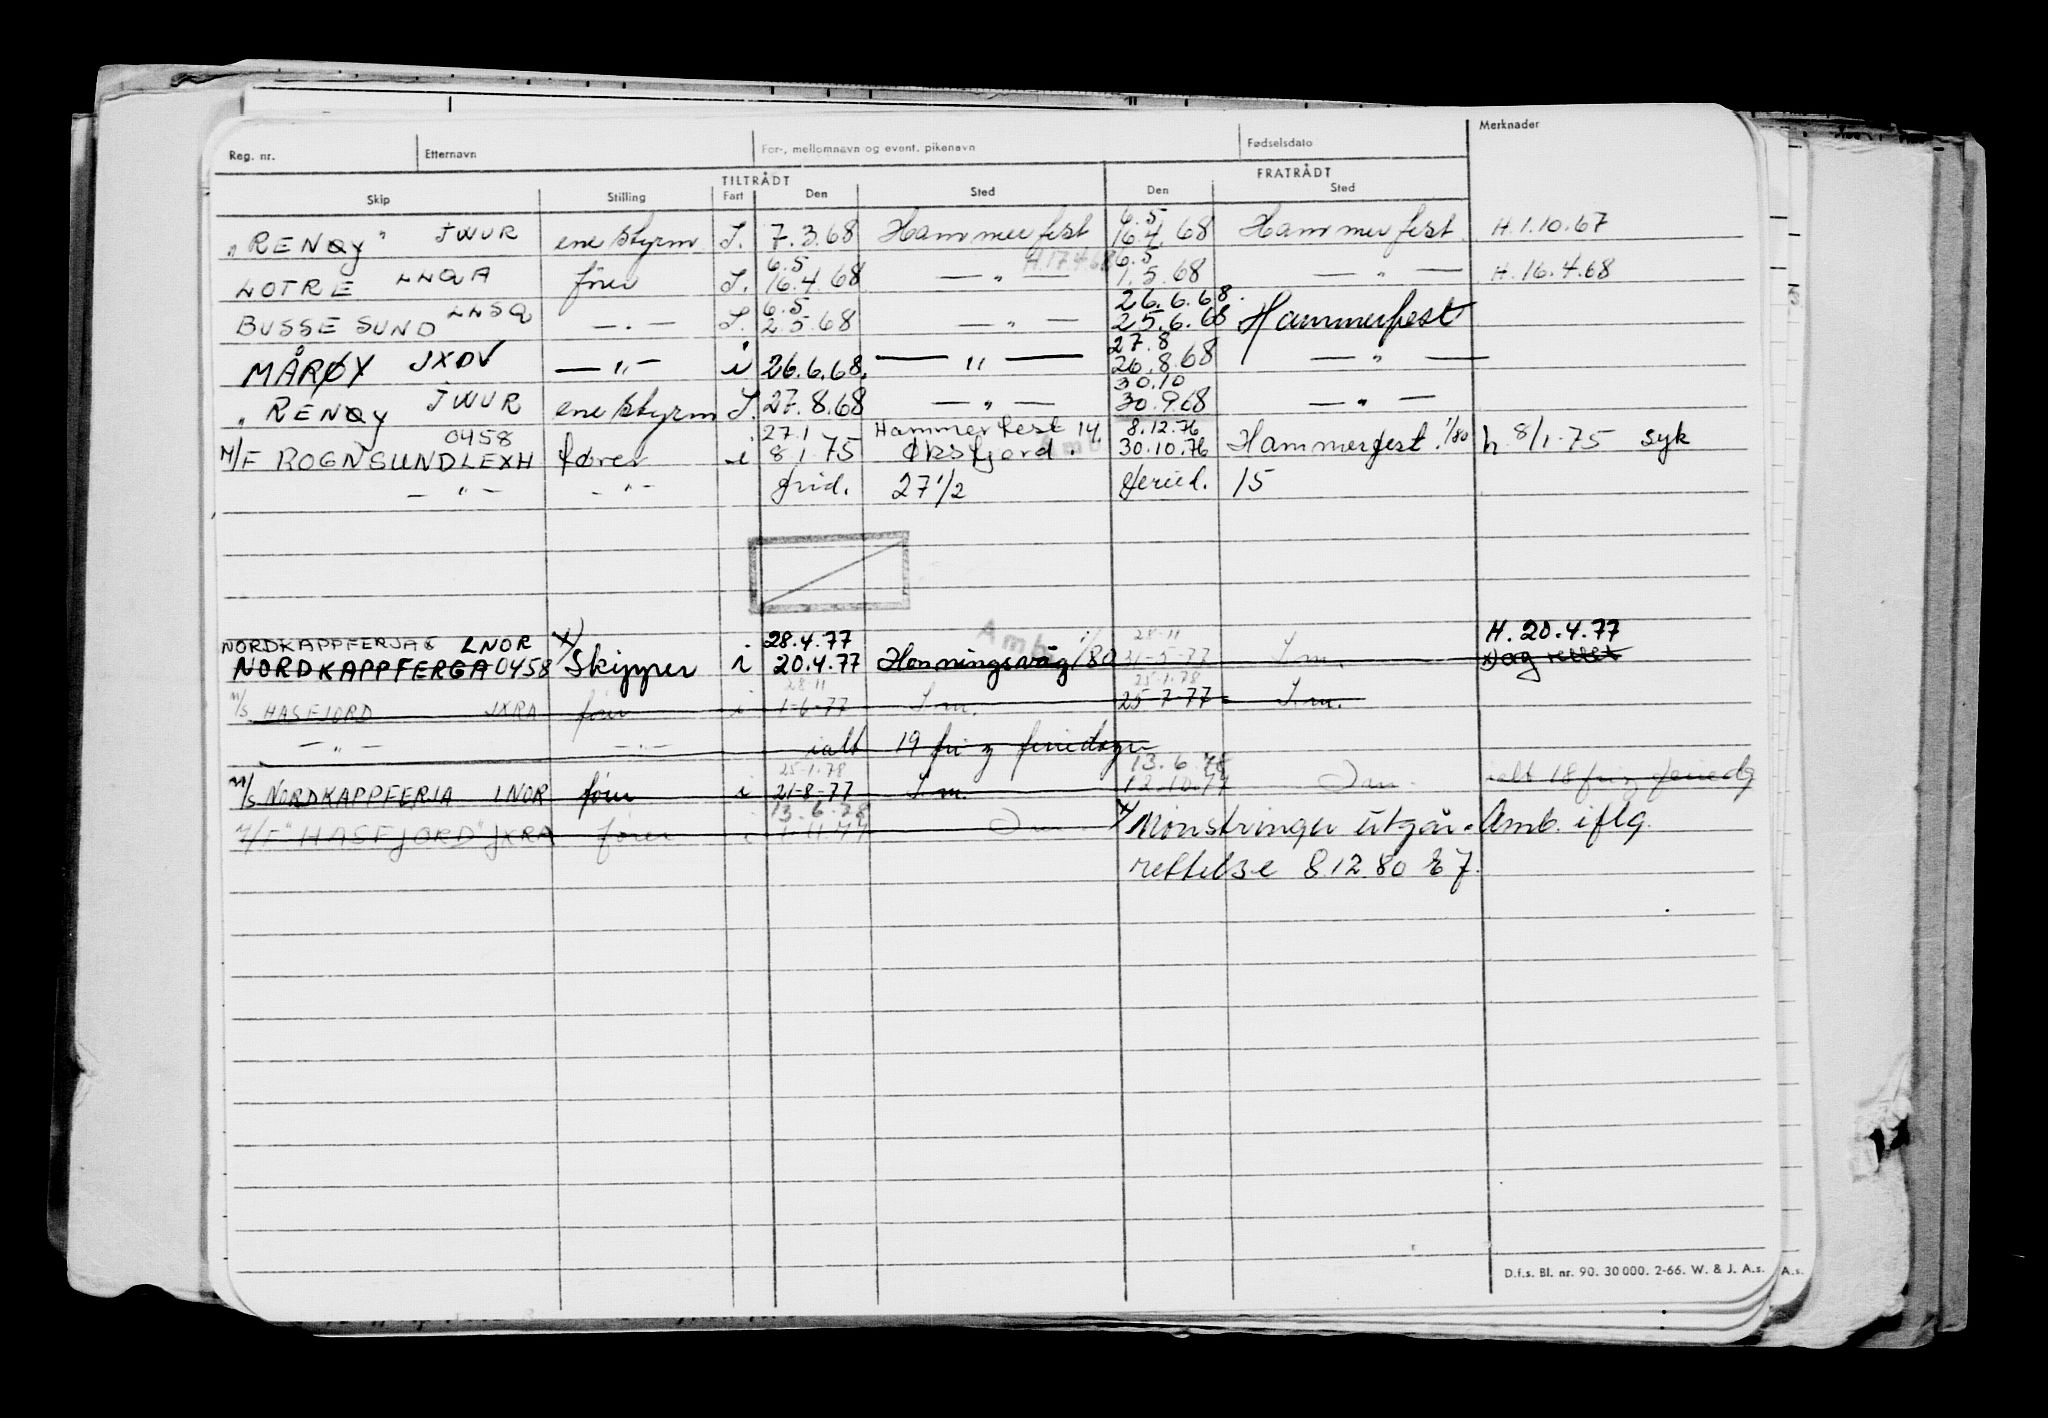 Reg. nr. Etternavn For-, mellomnavn og event. pikenavn Fødselsdato Merknader
TILTRÅDT FRATRÅDT
Skip Stilling Fart Den Sted Den Sted
6.5
"RENØY" JWUR ene styrm I. 7.3.68 Hammerfest 16.4.68 Hammerfest H.1.10.67
6.5 H.17.4.68 6.5
LOTRE LNQA fører I. 16.4.68 — " — 1.5.68 — " — H. 16.4.68
6.5 26.6.68.
BUSSESUND LNSQ — " — I. 2.5.68 — " — 25.6.68 Hammerfest
27.8
MÅRØY JXDV — " — i 26.6.68. — " — 26.8.68 — " —
30.10
"RENØY JWUR ene styrm I. 27.8.68 — " — 30.9.68 — " —
0458 27.1 Hammerfest 14. 8.12.76
M/F ROGNSUND LEXH fører i 8.1.75 Øksfjord. 30.10.76 Hammerfest 1/80 h. 8/1-75 syk
— " — — " — frid. 27 1/2 feried. 15
NORDKAPPFERJA LNOR x) 28.4.77 Amb. 28-11 H. 20.4.77
NORDKAPPFERGA 0458 Skipper i 20.4.77 Honningsvåg 1/80 31-5-77 I.m. x) og rettet
28-11 25.1.78
M/S HASFJORD JXRA fører i 1-6-77 I.m. 25-7-77 I.m.
— " — — " — ialt 19 fri og feriedager
25-1-78 13.6.78
M/S NORDKAPPFERJA LNOR fører i 21-8-77 I.m. 12.10.77 I m. ialt 18 fri og feriedg
13.6.78
M/F "HASFJORD" JXRA fører i 1.11.77 I m. x) Mønstringer utgår. Amb. iflg.
rettelse 8.12.80
D.f.s. Bl. nr. 90. 30 000. 2-66. W. & J. A.s. A.s.